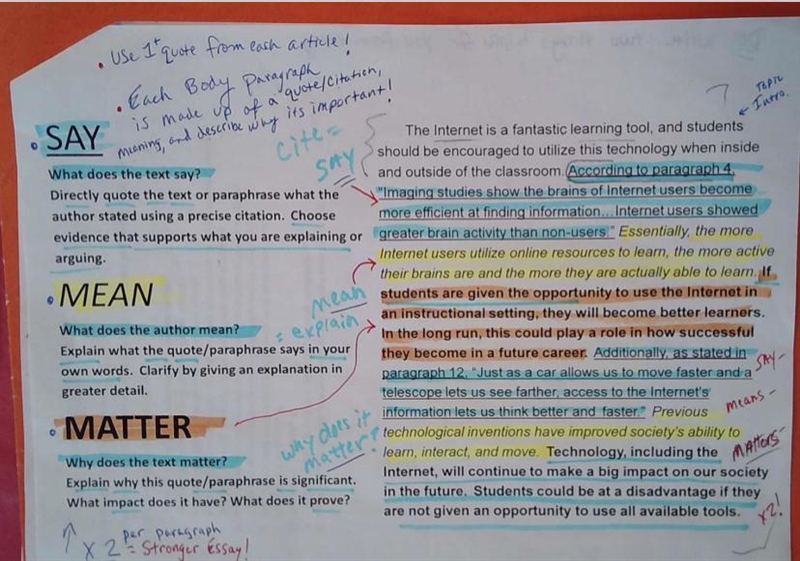 • USE 1+ quote from each article!
• Each Body Paragraph
is made up of a quote/citation,
meaning, and describe why its important!
SAY
What does the text say?
Directly quote the text or paraphrase what the
author stated using a precise citation. Choose
evidence that supports what you are explaining or
arguing.
cite =
SAY
MEAN
What does the author mean?
Explain what the quote/paraphrase says in your
own words. Clarify by giving an explanation in
greater detail.
mean
= explain
MATTER
Why does the text matter?
Explain why this quote/paraphrase is significant.
What impact does it have? What does it prove?
why does it
matter?
↑ x 2 per paragraph
= Stronger Essay!
TOPIC
← Intro.
The Internet is a fantastic learning tool, and students
should be encouraged to utilize this technology when inside
and outside of the classroom. According to paragraph 4,
"Imaging studies show the brains of Internet users become
more efficient at finding information... Internet users showed
greater brain activity than non-users." Essentially, the more
Internet users utilize online resources to learn, the more active
their brains are and the more they are actually able to learn. If
students are given the opportunity to use the Internet in
an instructional setting, they will become better learners.
In the long run, this could play a role in how successful
they become in a future career. Additionally, as stated in
paragraph 12, "Just as a car allows us to move faster and a
telescope lets us see farther, access to the Internet's
information lets us think better and faster." Previous
technological inventions have improved society's ability to
learn, interact, and move. Technology, including the
Internet, will continue to make a big impact on our society
in the future. Students could be at a disadvantage if they
are not given an opportunity to use all available tools.
SAY-
means-
MATTERS-
x2!